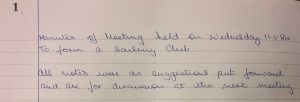 1
Minutes of Meeting held on Wednesday 11.1.84
To form a Sailing Club.
All notes were as suggestions put forward
and are for discussion at the next meeting